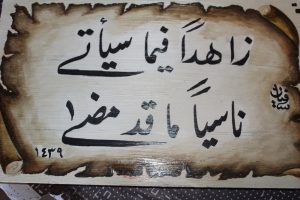 زاهداً فيما سيأتي
ناسياً ما قد مضى
١٤٣٩